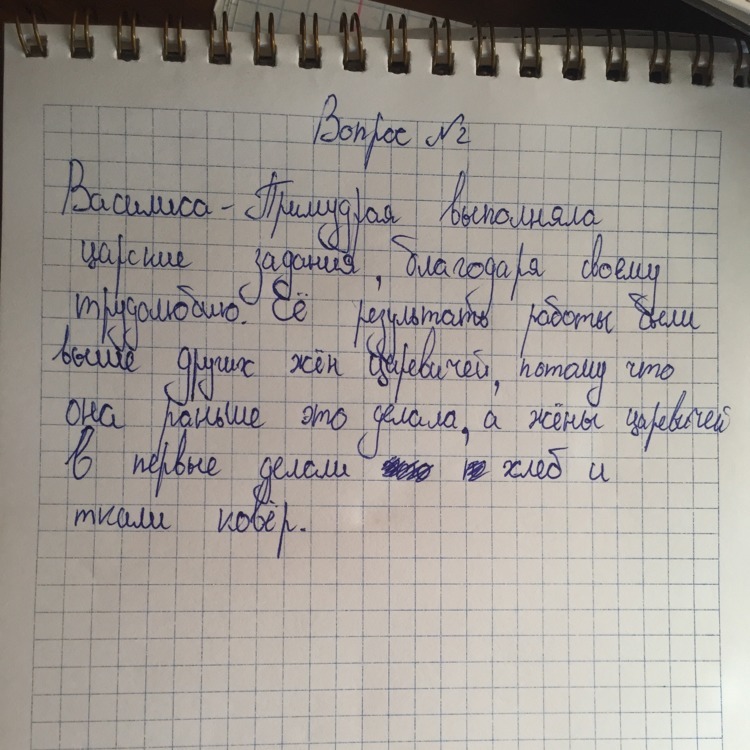 Вопрос №2
Василиса - Примудрая выполняла
царские задания, благодаря своему
трудолюбию. Её результаты работы были
выше других жён царевичей, потому что
она раньше это делала, а жёны царевичей
в первые делали хлеб и
ткали ковёр.